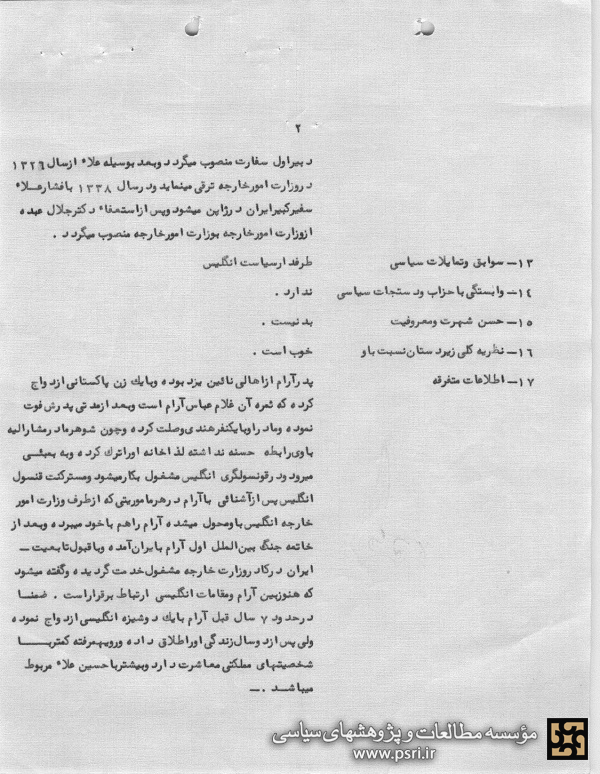 ۲
دبیراول سفارت منصوب میگردد وبعد بوسیله علاء ازسال ۱۳۲۶
دروزارت امورخارجه ترقی مینماید ودرسال ۱۳۳۸ بافشارعلاء
سفیرکبیرایران درژاپن میشود وپس ازاستعفاء دکترجلال عبده
ازوزارت امورخارجه بوزارت امورخارجه منصوب میگردد .
۱۳- سوابق وتمایلات سیاسی طرفدارسیاست انگلیس
۱۴- وابستگی باحزاب ودستجات سیاسی ندارد .
۱۵- حسن شهرت ومعروفیت بدنیست .
۱۶- نظریه کلی زیردستان نسبت باو خوب است .
۱۷- اطلاعات متفرقه پدرآرام ازاهالی نائین یزد بوده وبایك زن پاکستانی ازدواج
کرده که ثمره آن غلام عباس آرام است وبعد ازمدتی پدرش فوت
نموده ومادراوبایکنفرهندی وصلت کرده وچون شوهرمادرمشارالیه
باوی رابطه حسنه نداشته لذاخانه اوراترك کرده وبه بمبئی
میرود ودرقونسولگری انگلیس مشغول بکارمیشود ومسترکنت قنسول
انگلیس پس ازآشنائی باآرام درهرماموریتی که ازطرف وزارت امور
خارجه انگلیس باومحول میشده آرام راهم باخود میبرده وبعد از
خاتمه جنگ بین الملل اول آرام بایران آمده وباقبول تابعیت -
ایران درکادروزارت خارجه مشغول خدمت گردیده وگفته میشود
که هنوزبین آرام ومقامات انگلیسی ارتباط برقراراست . ضمنا
درحدود ۷ سال قبل آرام بایك دوشیزه انگلیسی ازدواج نموده
ولی پس ازدوسال زندگی اوراطلاق داده ورویهمرفته کمتربا
شخصیتهای مملکتی معاشرت دارد وبیشترباحسین علاء مربوط
میباشد .-
مؤسسه مطالعات و پژوهشهای سیاسی
www.psri.ir